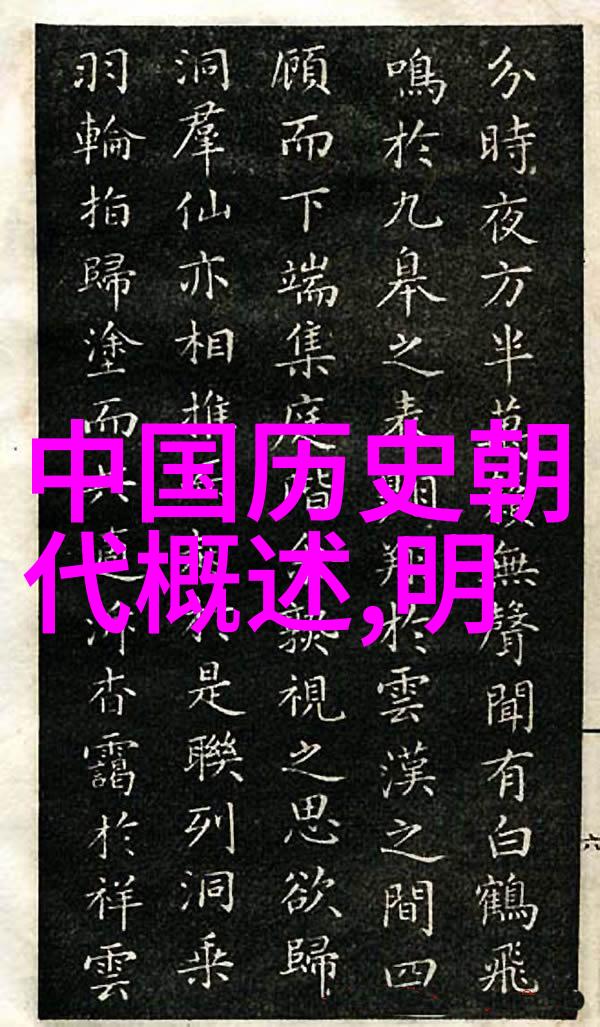 分時夜方半萬無聲聞有白鶴飛
鳴於九皐之表翔於雲漢之間四
顧而下端集庭階視之思欲歸
洞羣仙亦相推於是聯列洞乘
羽輪拍歸塗而共適沖杳靄於祥雲
中国历史朝
代概述,明
六